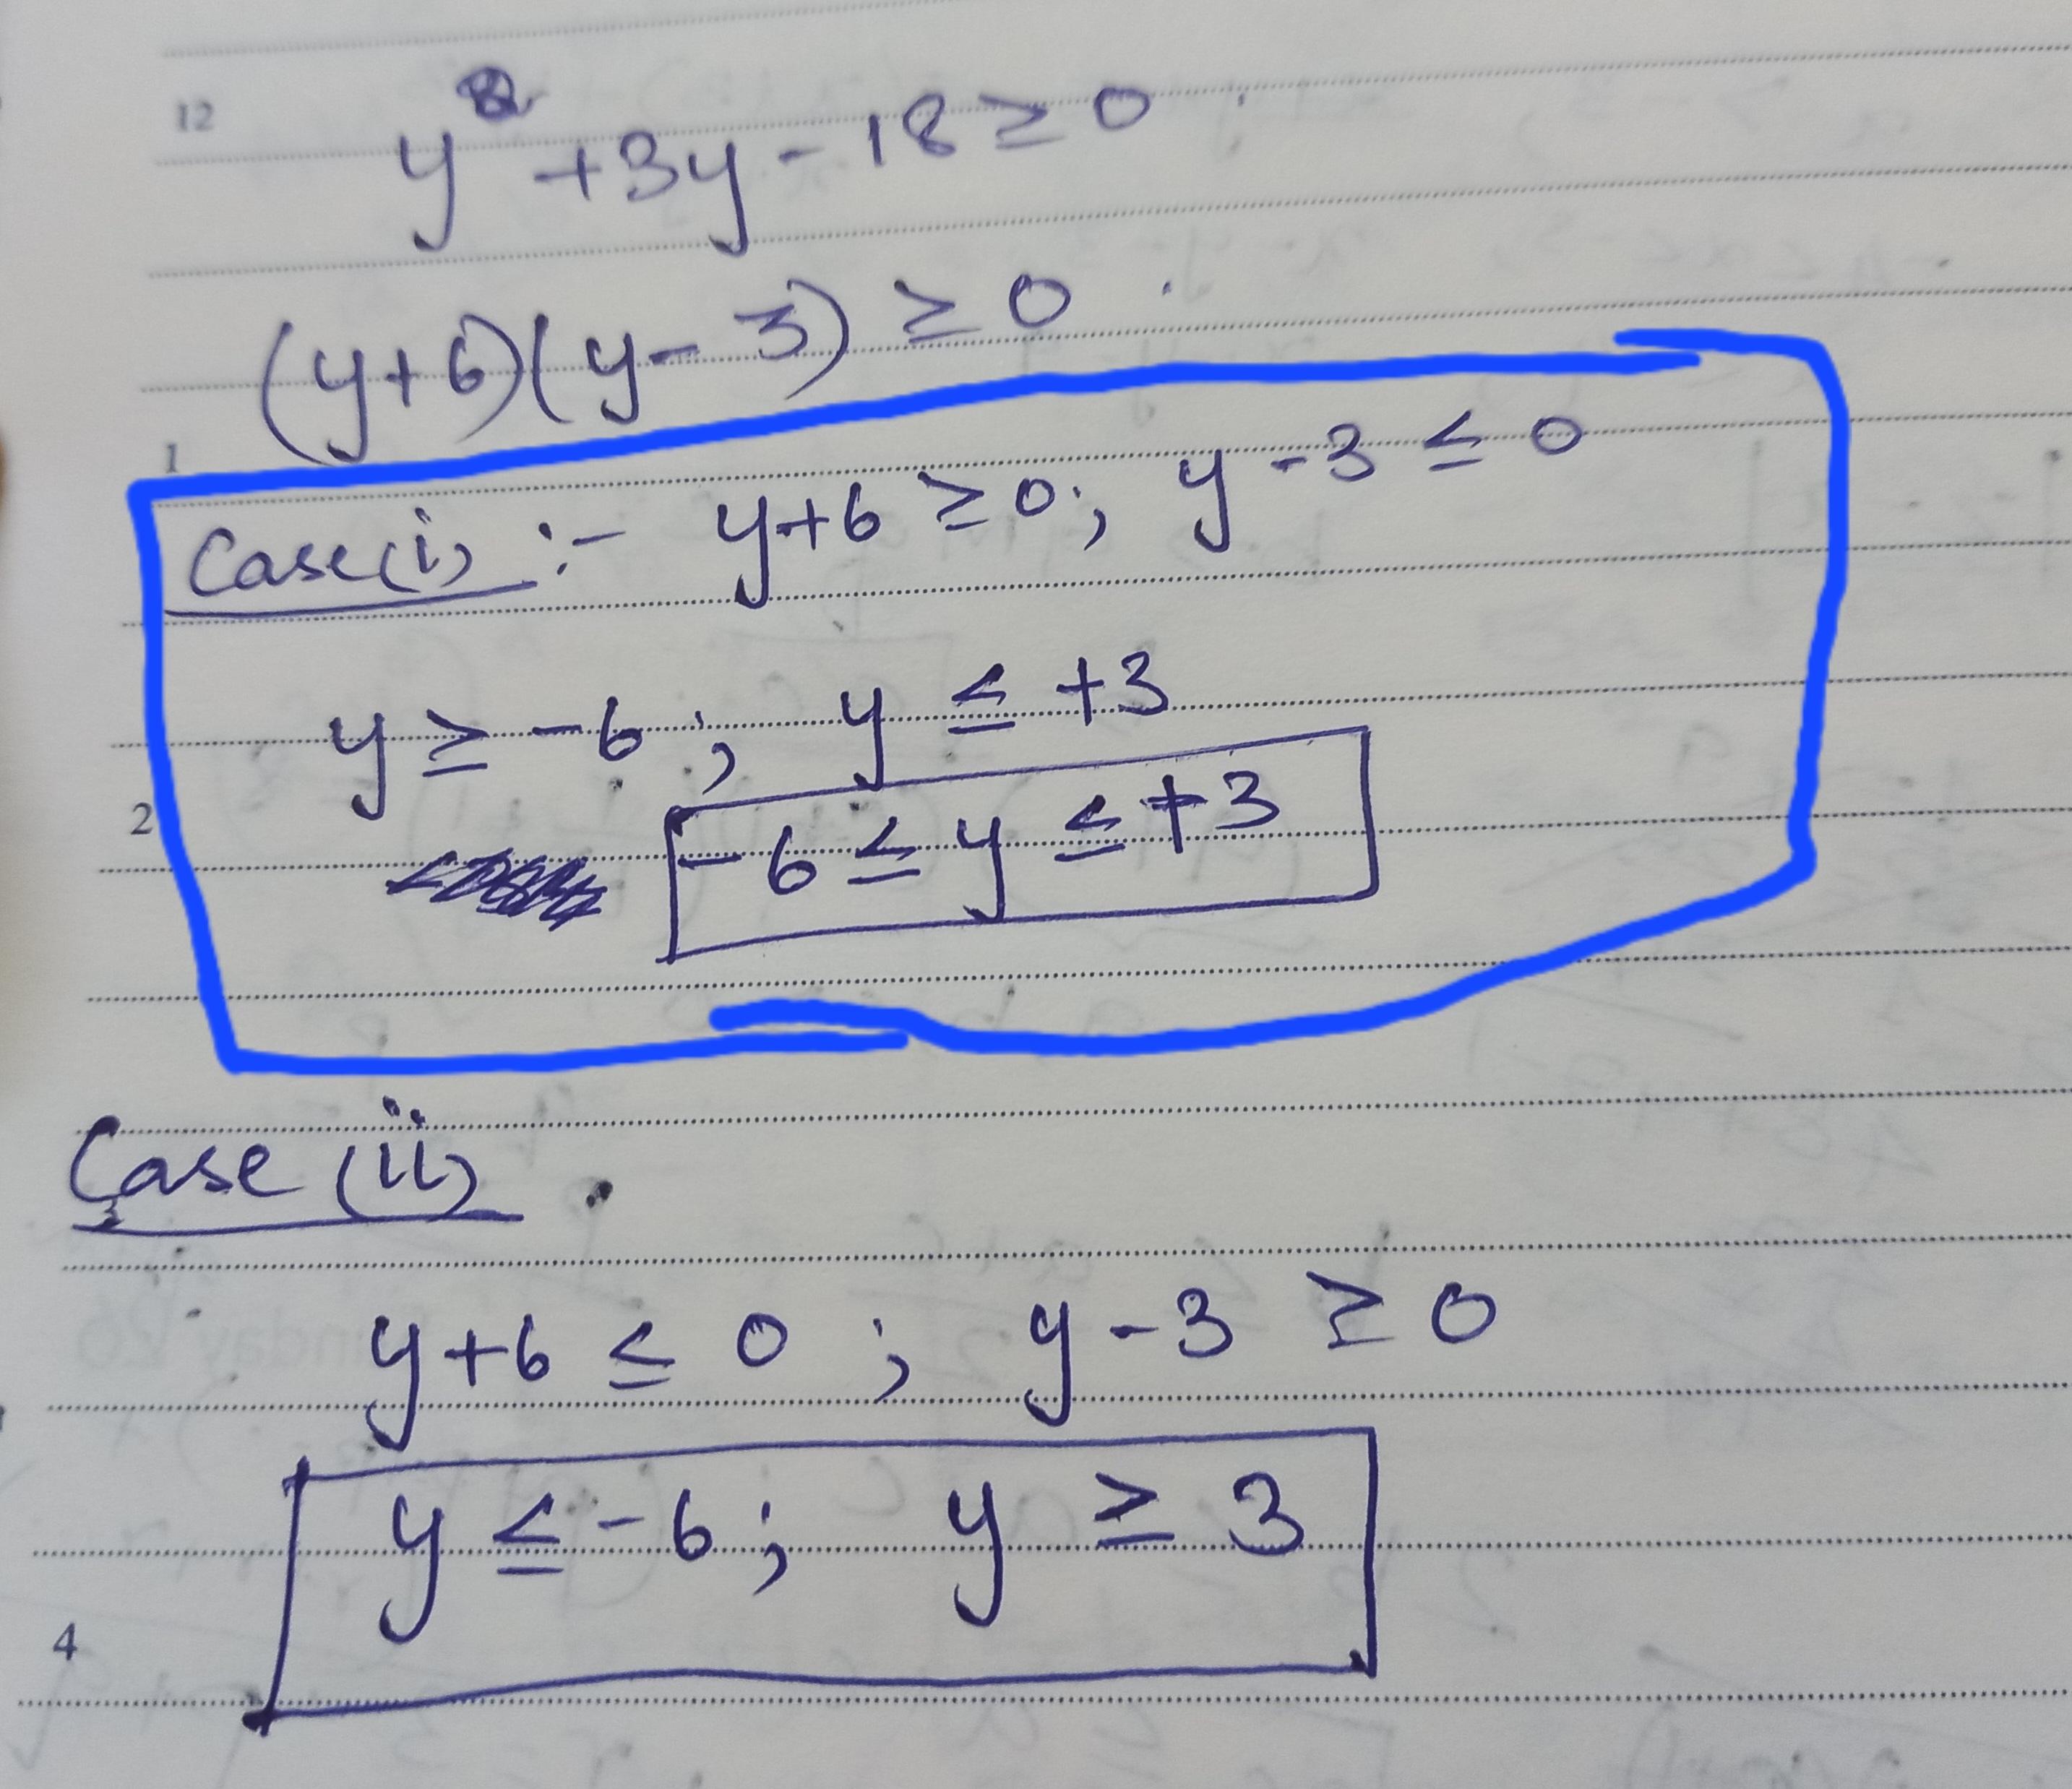 12
y² + 3y - 18 ≥ 0
(y+6)(y-3) ≥ 0
1
Case(i) :- y+6 ≥ 0; y-3 ≤ 0
y ≥ -6 ; y ≤ +3
2
-6 ≤ y ≤ +3
Case (ii)
3
y+6 ≤ 0 ; y-3 ≥ 0
y ≤ -6; y ≥ 3
4